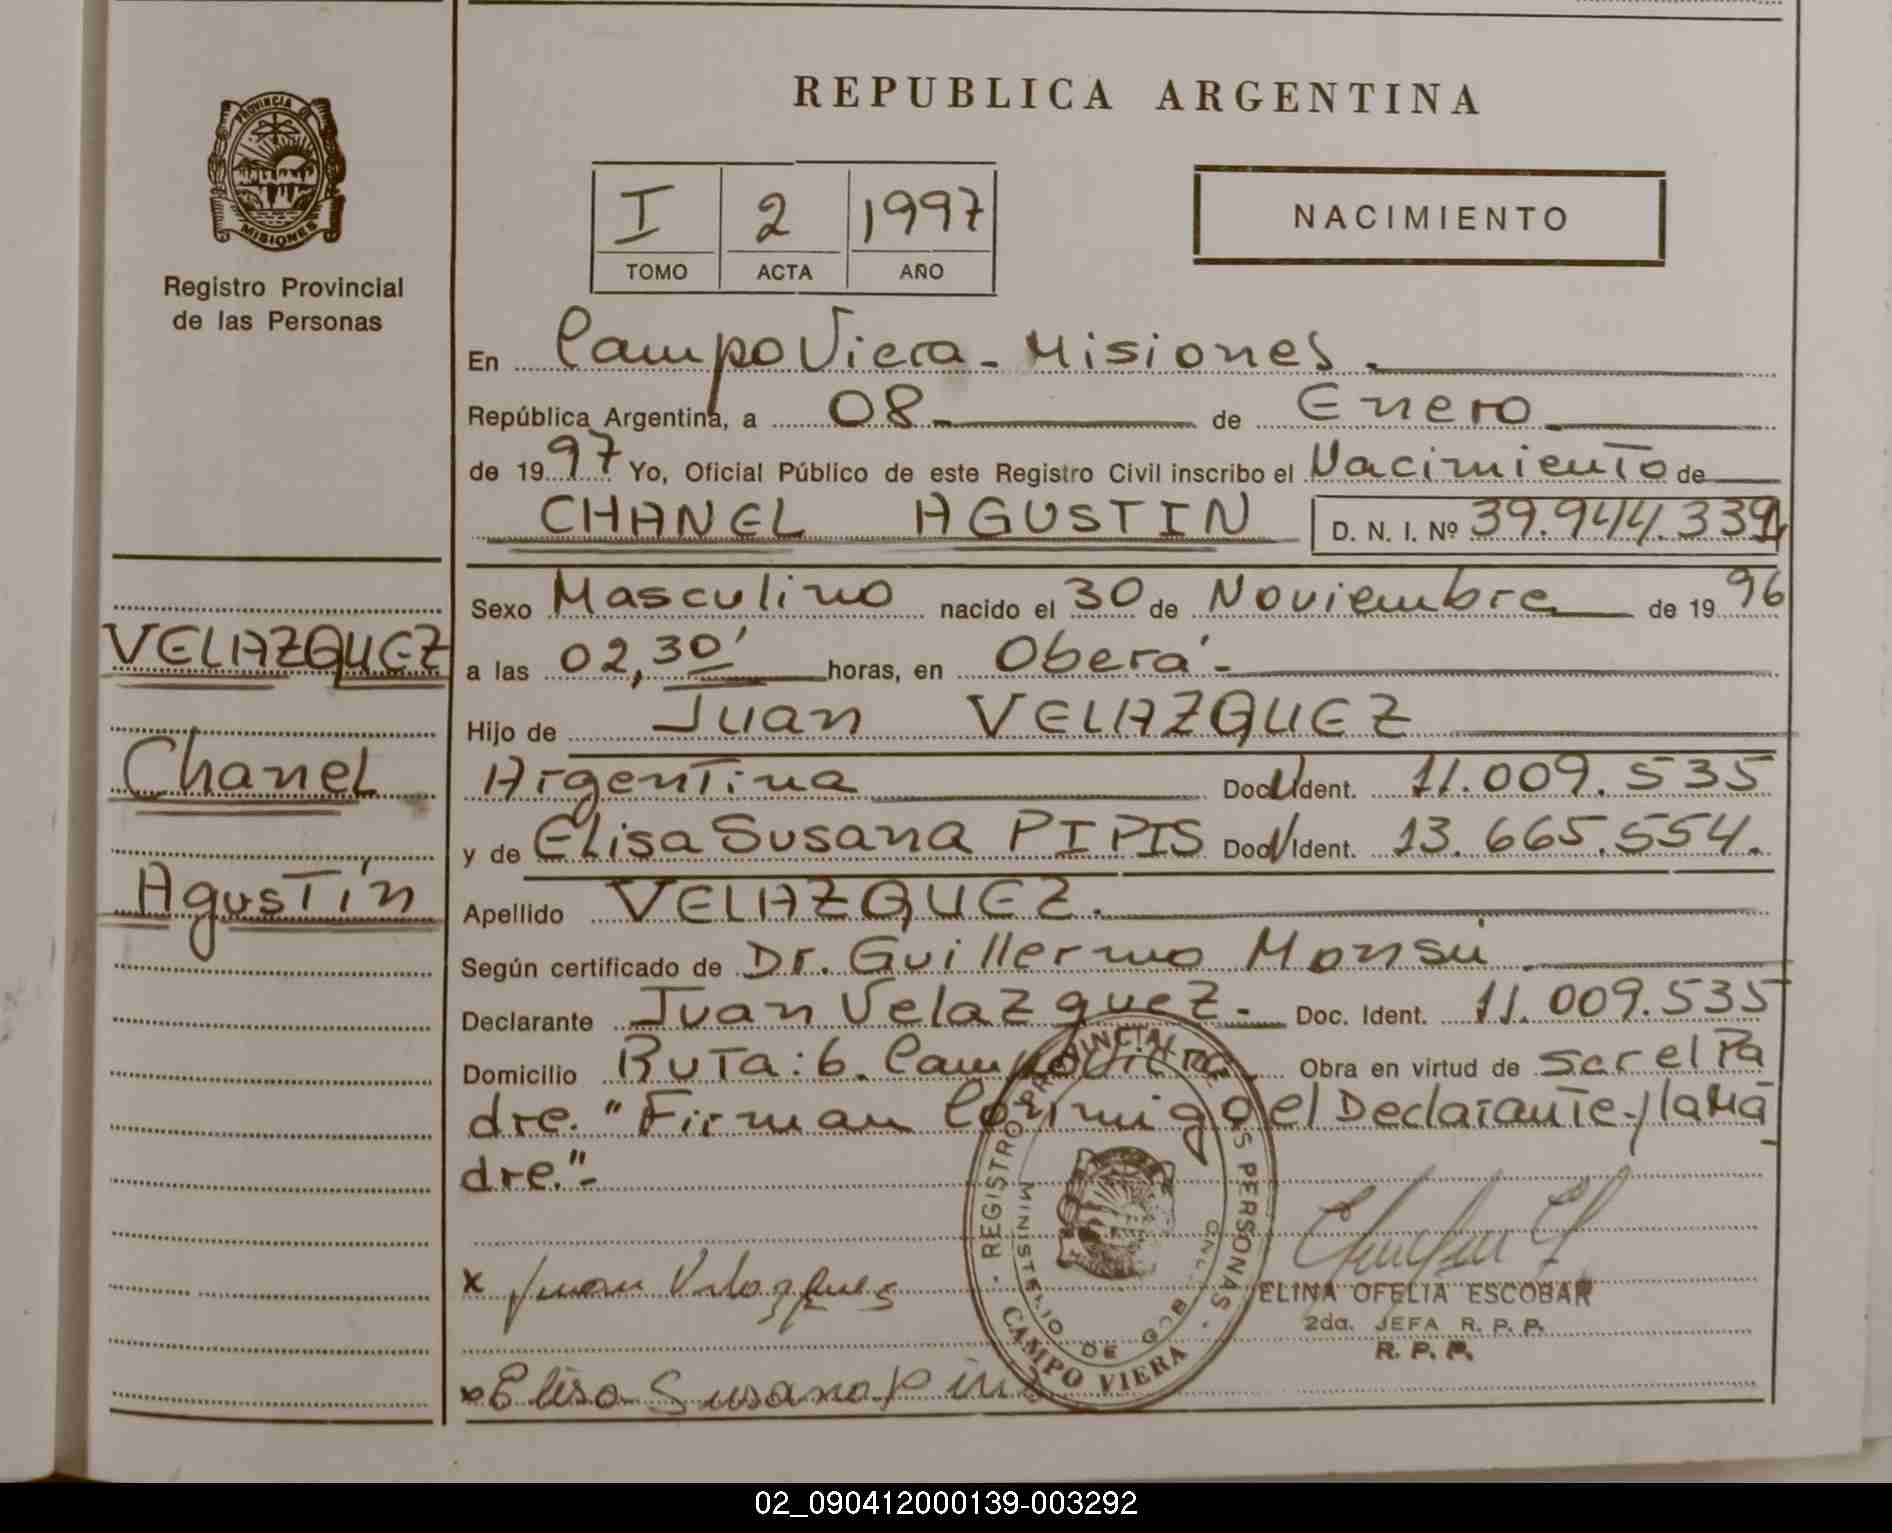 REPUBLICA ARGENTINA
PROVINCIA DE
MISIONES
Registro Provincial
de las Personas
I 2 1997
TOMO ACTA AÑO
NACIMIENTO
En Campo Viera - Misiones.
República Argentina, a 08 de Enero
de 1997 Yo, Oficial Público de este Registro Civil inscribo el Nacimiento de
CHANEL AGUSTIN D. N. I. Nº 39.944.339
Sexo Masculino nacido el 30 de Noviembre de 1996
a las 02,30' horas, en Oberá.-
Hijo de Juan VELAZQUEZ
Argentina Doc. Ident. 11.009.535
y de Elisa Susana PIPIS Doc. Ident. 13.665.554.
Apellido VELAZQUEZ.
Según certificado de Dr. Guillermo Monsú
Declarante Juan Velazquez.- Doc. Ident. 11.009.535
Domicilio Ruta: 6. Campo Viera. Obra en virtud de ser el Pa
dre. "Firman Conmigo el Declarante y la Ma
dre."-
VELAZQUEZ
Chanel
Agustín
x Juan Velazques
x Elisa Susana
REGISTRO PROVINCIAL DE LAS PERSONAS
MINISTERIO DE GOB
CAMPO VIERA
ELINA OFELIA ESCOBAR
2da. JEFA R. P. P.
R. P. P.
02_090412000139-003292